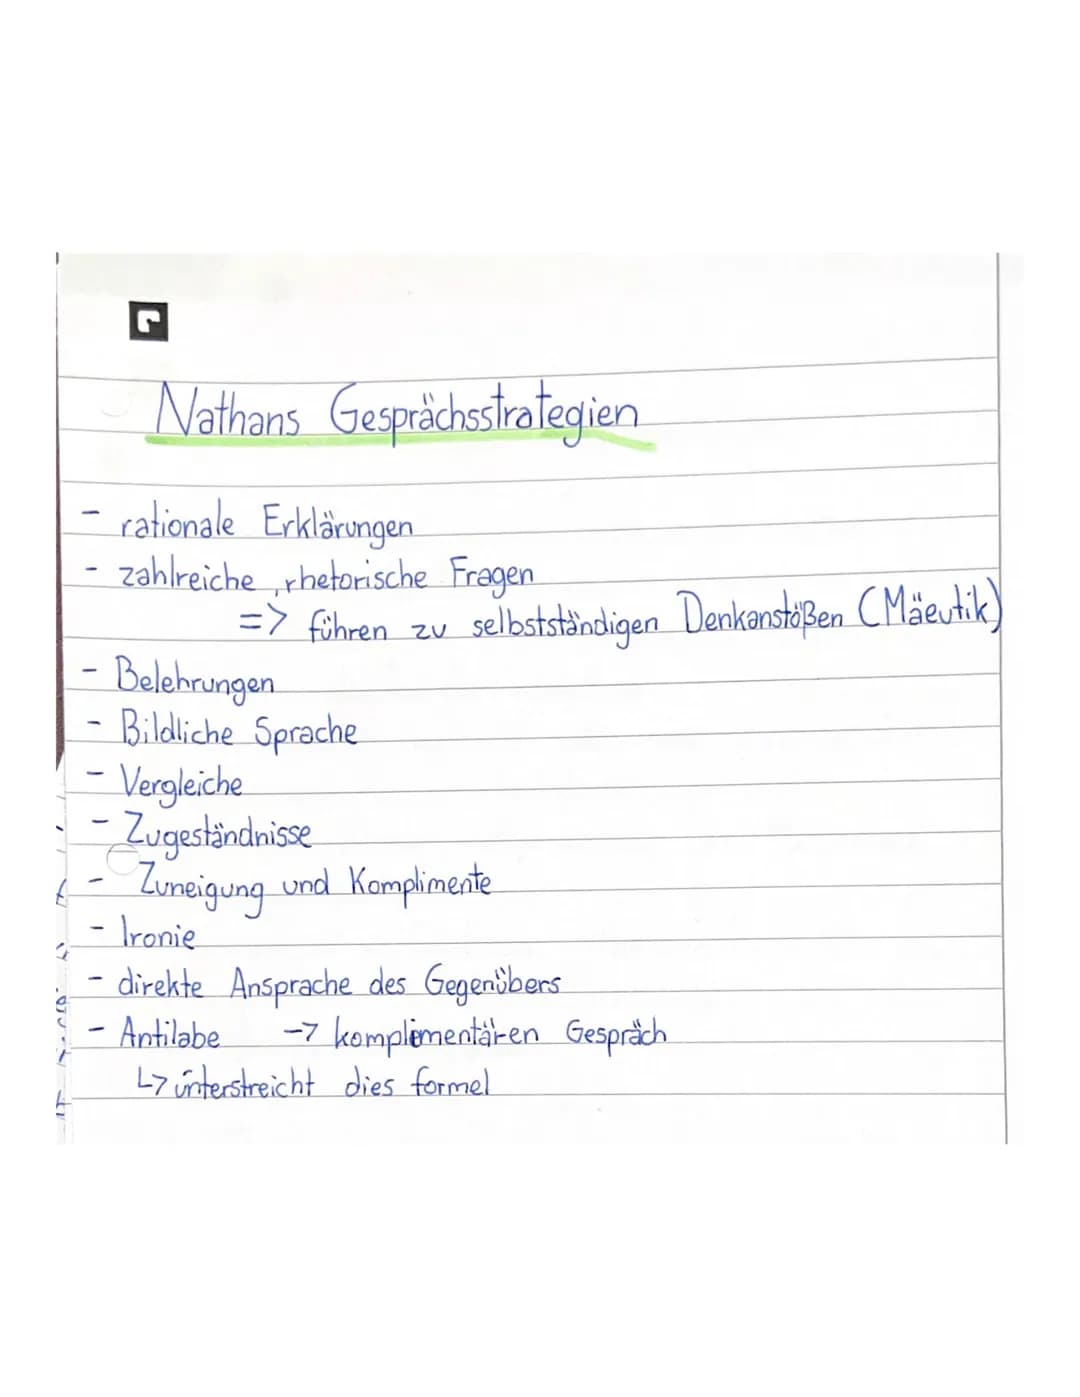 Nathans Gesprächsstrategien
- rationale Erklärungen
- zahlreiche, rhetorische Fragen
=> führen zu selbstständigen Denkanstößen (Mäeutik)
- Belehrungen
- Bildliche Sprache
- Vergleiche
- Zugeständnisse
- Zuneigung und Komplimente
- Ironie
- direkte Ansprache des Gegenübers
- Antilabe -> komplementären Gespräch
↳ unterstreicht dies formel